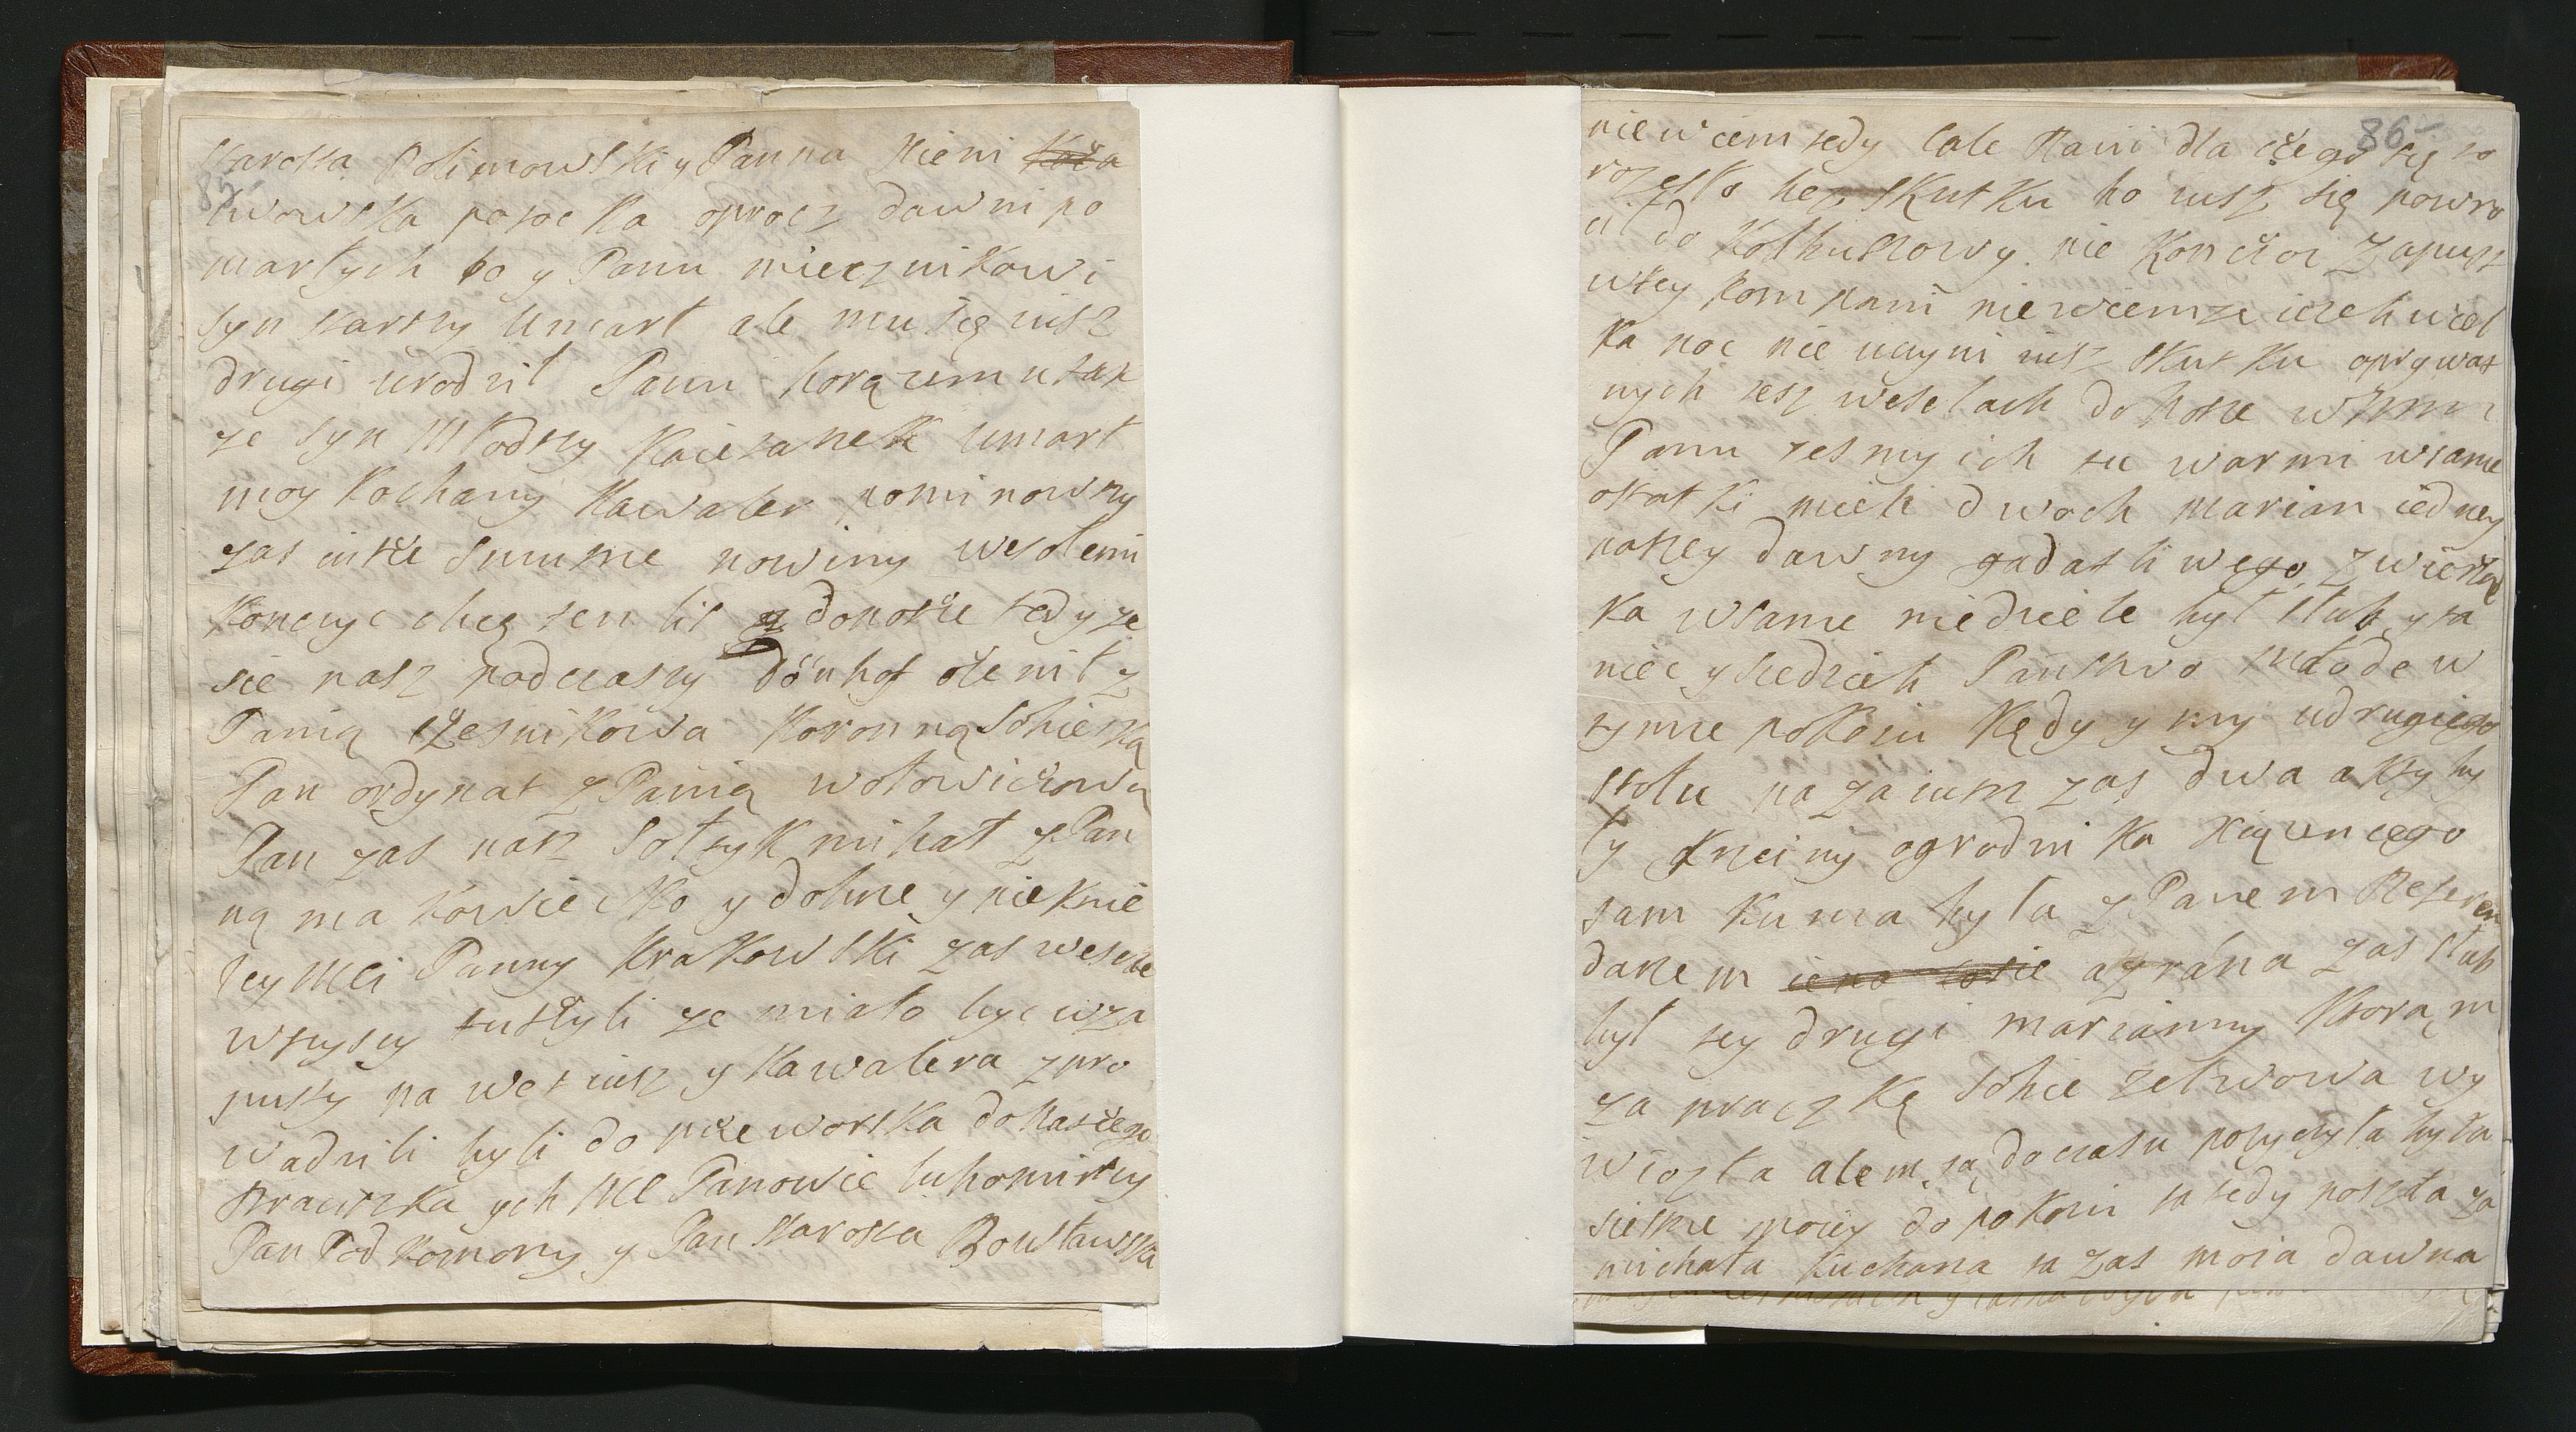 starosta Bolimowski y Panna Sieni Koza
85
kwowska potocka oprocz dawni po
marłych bo y Panu miecznikowi
syn starszy Umarł ale mu się iusz
drugi urodził Panu horązemu tak
ze syn Młodszy Kaietanek umarł
moy Kochany Kawaler pominowszy
zas insze smutne nowiny wesołemi
Konczyc chcę ten list donosze tedy ze
sie nasz podczaszy dönhof ożenił z
Panią czesnikowa Koronną Sobieską
Pan ordynat z Panią wołowiczową
Pan zas nasz Sołtyk mihał z Pan
ną makowiecko y dobrze y pieknie
Jey MCi Panny Krakowski zas wesele
wszyscy tuszyli ze miało byc w za
pusty na wet iusz y Kawalera z pro
wadzili byli do przeworska do naszego
Krawczka ych MC Panowie lubomirscy
Pan Podkomorzy y Pan starosta Bousławski
86
niewiem tedy cale Pani dla czego się to
rozeszło bez skutku bo iusz się powro
cił do Kolbuszowy nie Konczoi zapust
w tey kompani niewiem ze iezeli wiel
ka noc nie uczyni iusz skutku o prywat
nych tesz weselach donosze W M M
Panu zesmy ich tu warmi w same
ostatki mieli dwoch Marian iedney
naszey dawny gadatliwego zwierza
ka w same niedziele był slub y ta
niec y siedzieli Panstwo młode w
tymze pokoiu Kędy y my u drugiego
stołu na zaiutrz zas dwa akty by
ły chrzciny ogrodnika Xiązencego
sam kuma była z Panem Referen
darzem a z rana zas slub
był tey drugi marianny Ktorąm
za praczkę sobie ze lwowa wy
wiozła alem ią do czasu pozyczyła była
siestrze moiey do pokoiu ta tedy poszła za
michała kucharza ta zas moia dawna